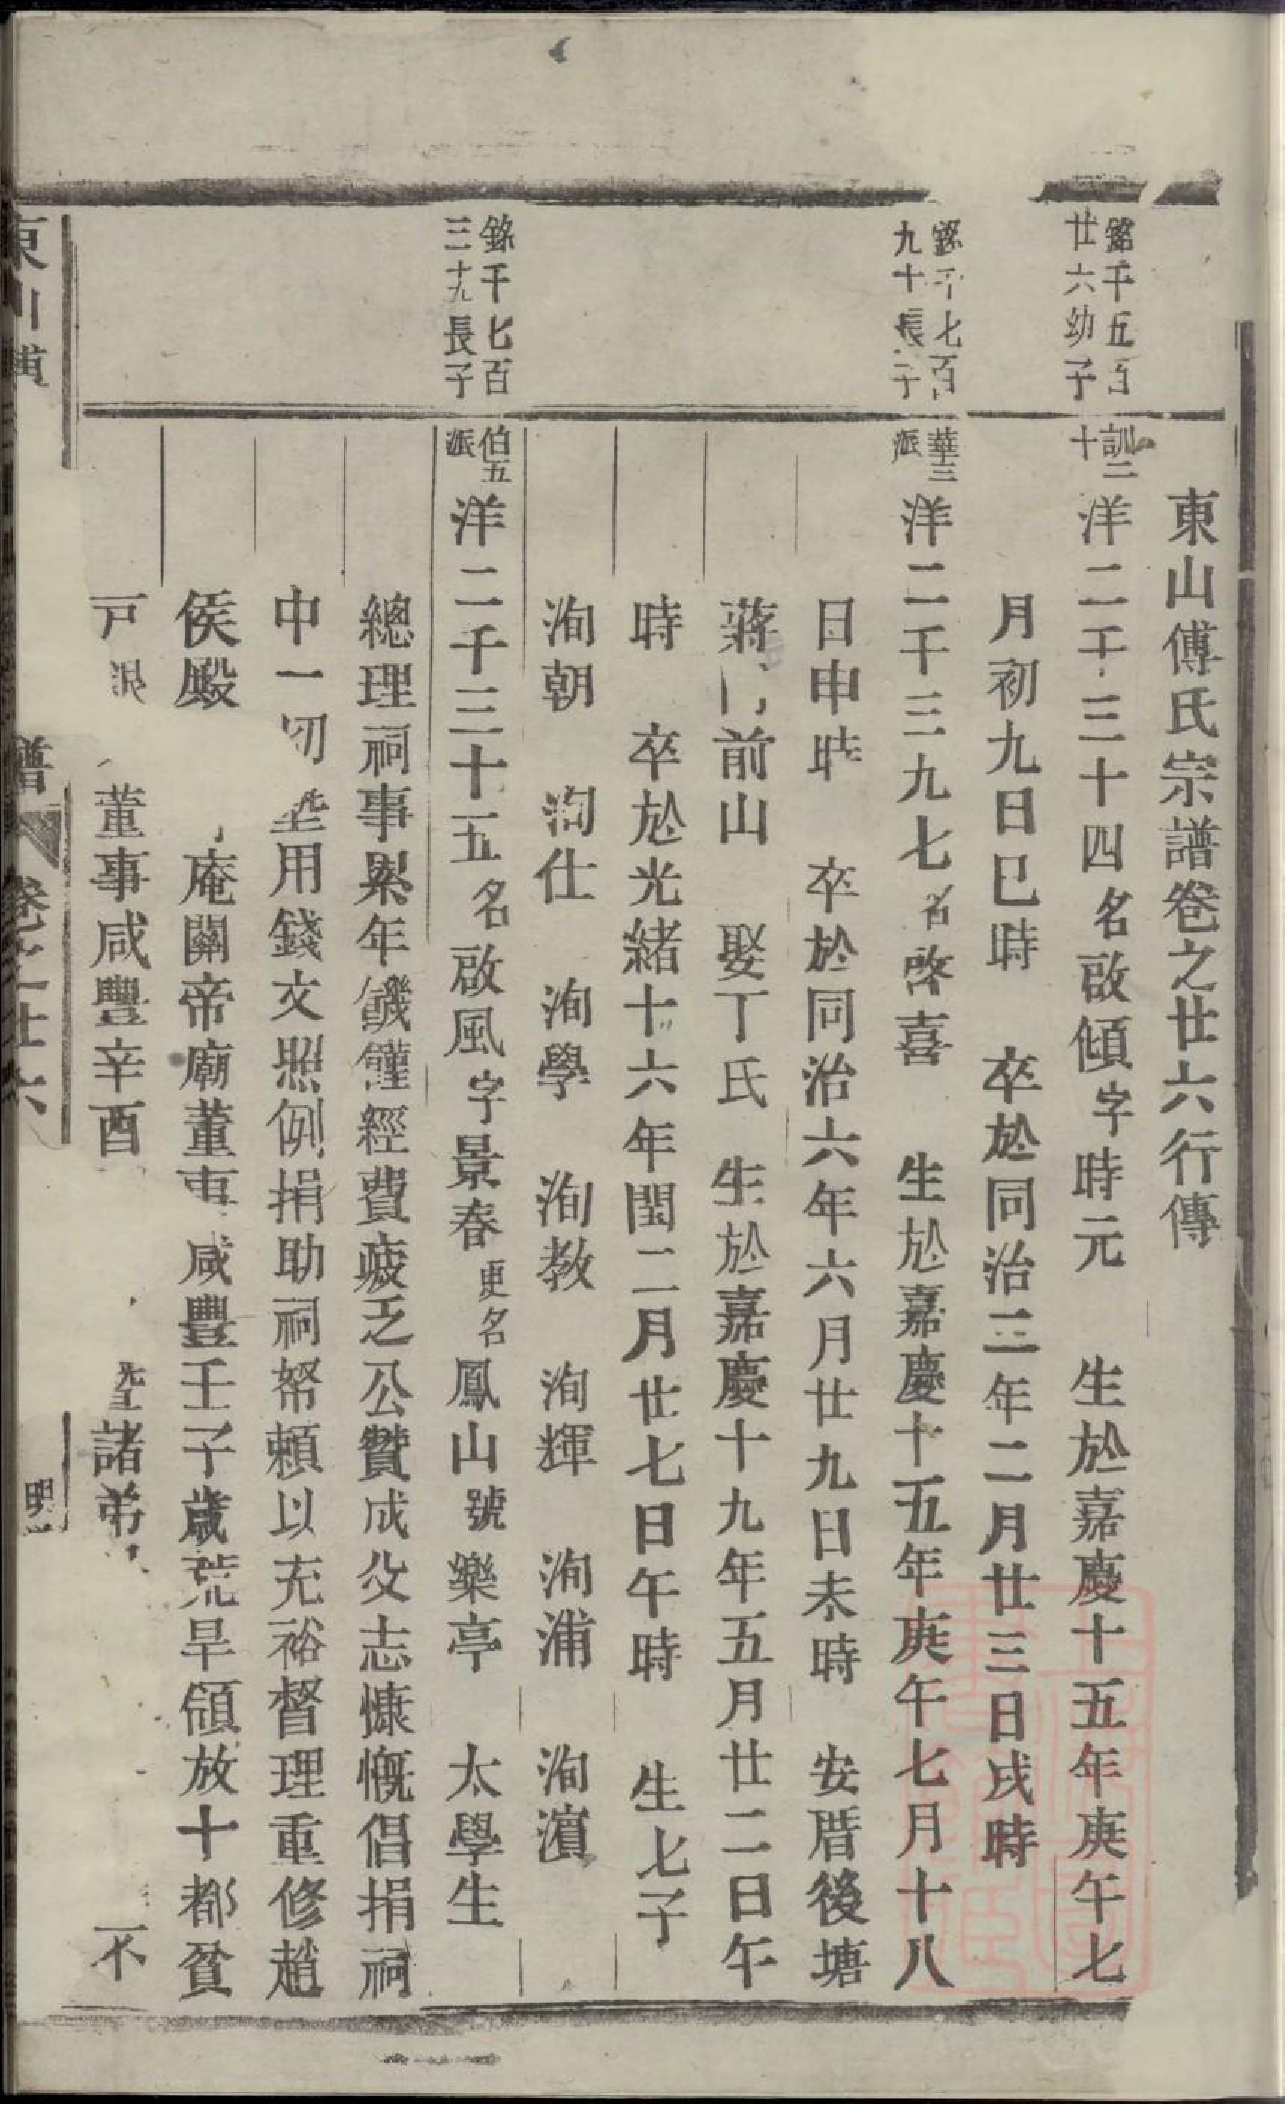 東山傅氏宗譜卷之廿六行傳
錦千五百
廿六幼子
訓二
十
洋二千三十四名啟傾字時元 生於嘉慶十五年庚午七
月初九日巳時 卒於同治三年二月廿三日戌時
錦千七百
九十長子
華三
派
洋二千三九七名啓喜 生於嘉慶十五年庚午七月十八
日申時 卒於同治六年六月廿九日未時 安厝後塘
蔣 前山 娶丁氏 生於嘉慶十九年五月廿二日午
時 卒於光緒十六年閏二月廿七日午時 生七子
洵朝 洵仕 洵學 洵教 洵輝 洵浦 洵濵
錦千七百
三十九長子
伯五
派
洋二千三十五名啟風字景春更名鳳山號樂亭 太學生
總理祠事累年饑饉經費疲乏公贊成父志慷慨倡捐祠
中一切 用錢文照例捐助祠帑賴以充裕督理重修趙
侯殿 庵關帝廟董事咸豐壬子歲荒旱領放十都貧
戸 董事咸豐辛酉 諸弟 不
東山傅
譜 卷之廿六